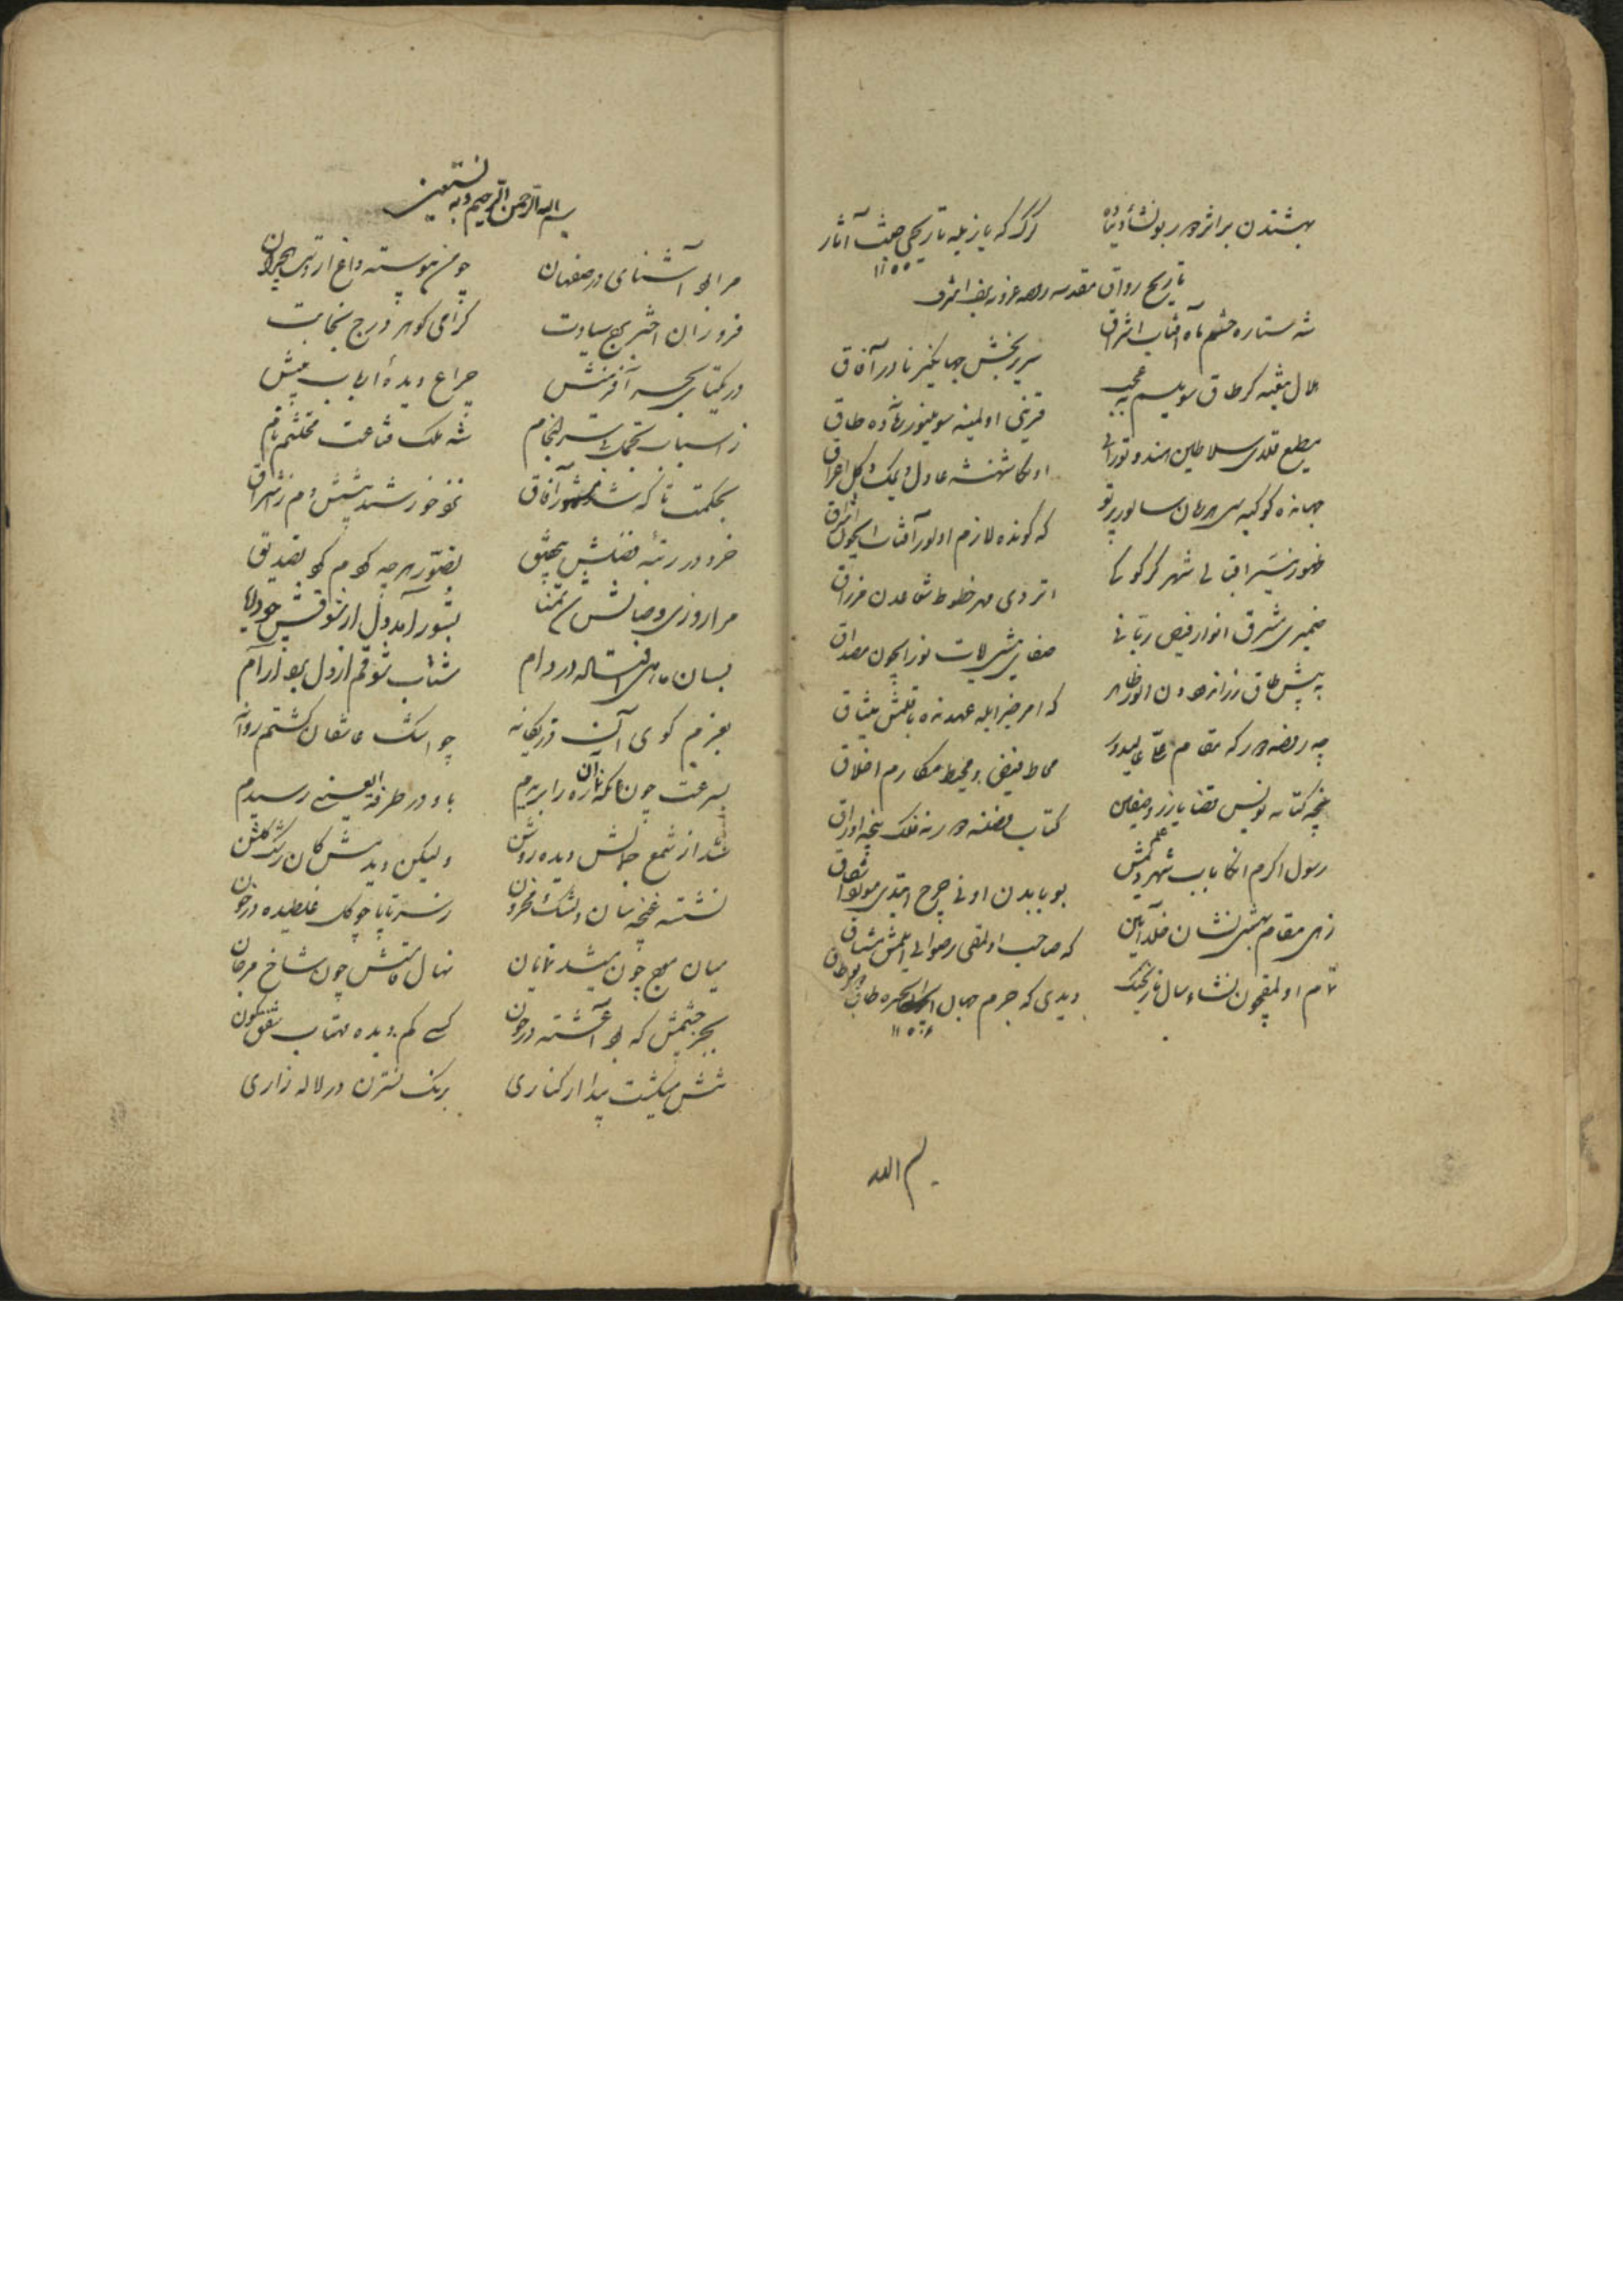 بهشتدن بر اثردر بو نشأه دنیاده
گرک که یازیله تاریخی جنت آثار
۱۱۵۵
تاریخ رواق مقدسه روضه غرویه نجف اشرف
شه ستاره حشم ماه آفتاب اشراق
سریربخش جهانگیر نادر آفاق
هلال
قرینی اولمیه سویلنور زمانه‌ده طاق
مطیع قلدی سلاطین هند و تورانی
اولکا شهنشه عادل دیمک دگل اغراق
جهانده کوکبه‌سی مهرمان سالور پرتو
که کونده لازم اولور آفتاب ایچون اشراق
ظهور نیر اقبالی شهر کرکوکی
اتردی مهر خطوط شعاعدن
ضمیری مشرق انوار فیض ربانی
صفای مشربی آیات نور ایچون مصداق
به پیش طاق زراندوددن اولور ظاهر
که امر خیر ایله عهدنده باغلمش میثاق
چه روضه‌در که مقام علی عالیدور
محاط فیضی در محیط مکارم اخلاق
نیجه کتابه نویس قضا یازر وصفین
کتاب فضلنه در نه فلک نیجه اوراق
رسول اکرم انکا باب شهر علم دیمش
بو بابدن اونی چرخ ایتدی
زهی مقام بهشتی نشان خلد آیین
که صاحب اولمقی رضوانی ایلمش مشتاق
تمام اولمقیچون نشأه سال تاریخنک
دیدی که جرم جبال طاق
۱۱۵۶
بسم الله
بسم الله الرحمن الرحیم و به نستعین
مرا بود آشنای در صفهان
چو من پیوسته داغ از درد هجران
فروزان اختر برج سیادت
گرامی گوهر درج نجابت
در یکتای بحر آفرینش
چراغ دیدهٔ ارباب بینش
ز اسباب تجمل بی سرانجام
شه ملک قناعت محتشم نام
بحکمت تا که شد مشهور آفاق
نمود خورشید پیشش دم ز اشراق
خرد در رتبه فضلش بتحقیق
تصور هرچه کردم کرد تصدیق
مرا روزی وصالش شد تمنا
بشور آمد دل از شوقش چو دریا
بسان ماهی افتاده در دام
شتاب شوقم از دل برد آرام
بعزم کوی آن در یگانه
چو اشک عاشقان گشتم روانه
بسرعت چون نگه تا ره بریدم
باو در طرفة العینی رسیدم
شد از شمع جمالش دیده روشن
ولیکن دیدمش کان رشک گلشن
نشسته غنچه سان دلتنگ و محزون
ز سر تا پا چو گل غلطیده در خون
میان موج خون میشد نمایان
نهال قامتش چون شاخ مرجان
بجز چشمش که بود آغشته در خون
کسی کم دیده مهتاب شفق گون
تنش میگشت پیدا از کناری
برنگ نسترن در لاله زاری